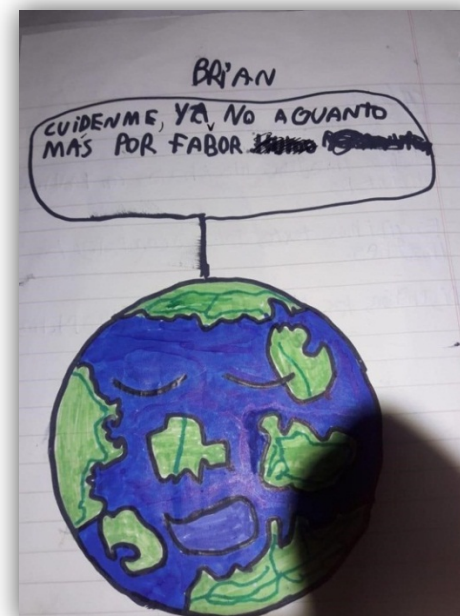 BRIAN
CUIDENME, YA, NO AGUANTO
MÁS POR FABOR